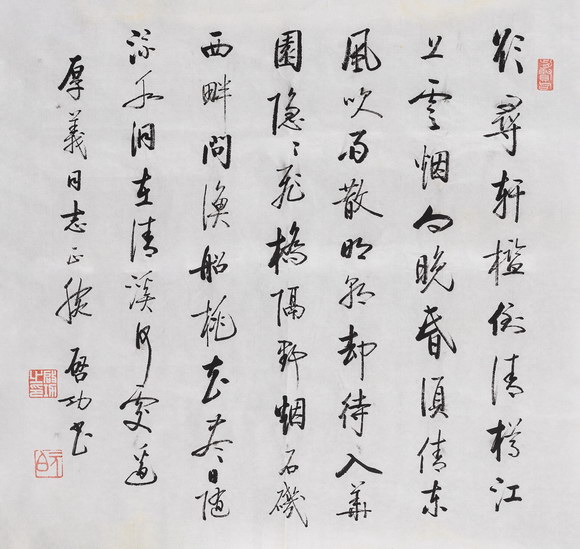 欲尋軒檻倒清樽江
上雲烟向晚昏須倩東
風吹雨散明朝却待入華
園隐々飛橋隔野烟石磯
西畔問漁船桃花盡日随
流水洞在清溪何處邊
厚義同志正腕 啓功書
元白